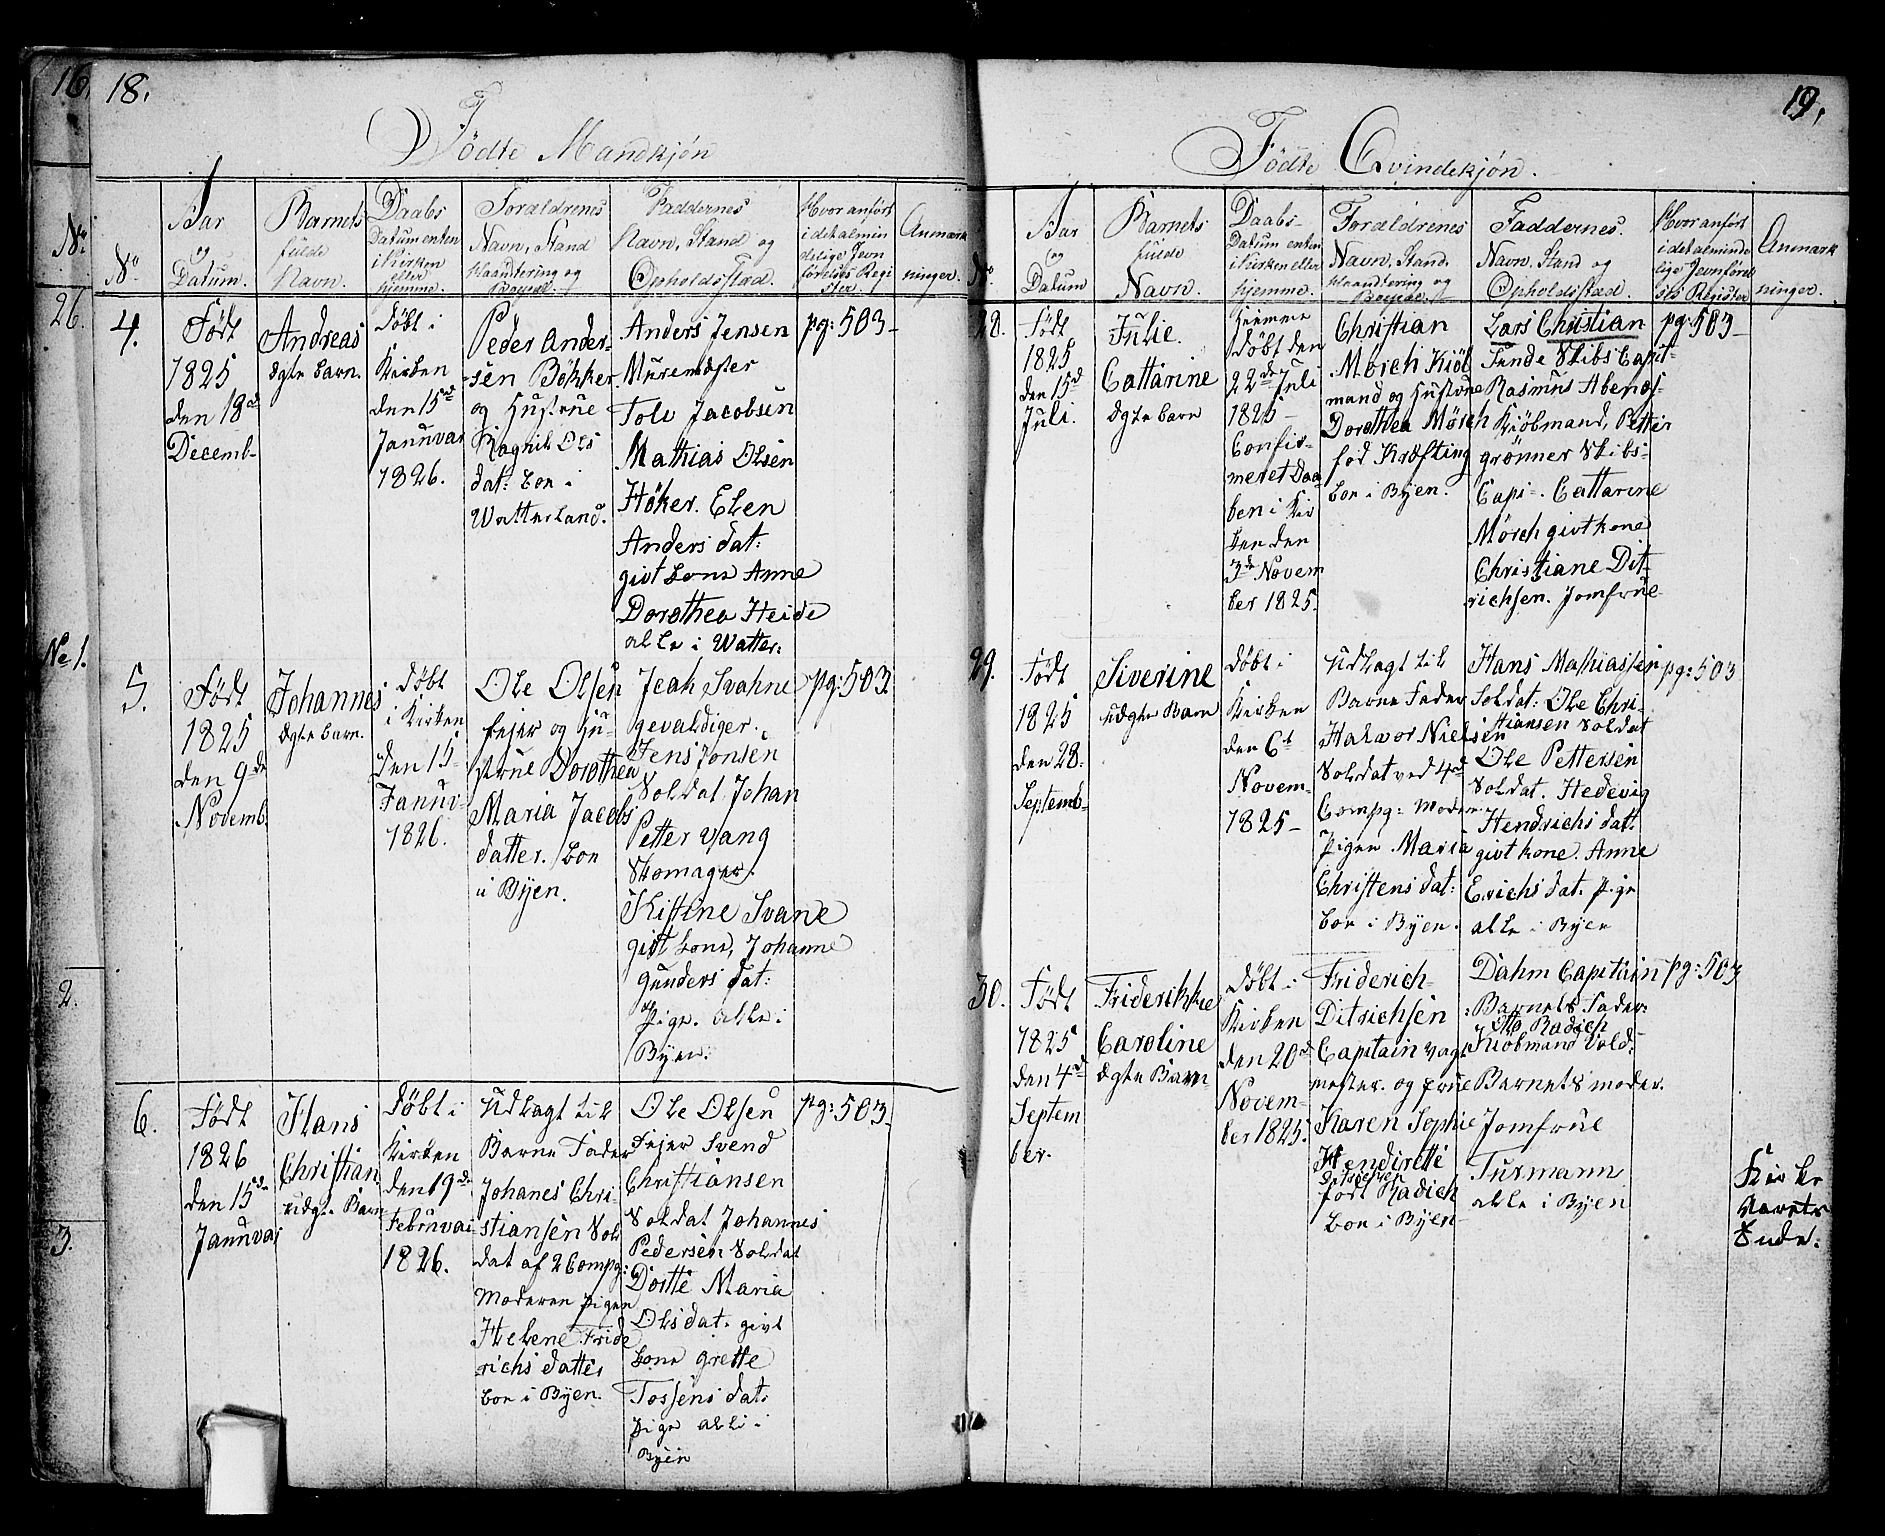 16.
18.
Födte Mandkjön
No
No
Aar
og
Datum.
Barnets
fulde
Navn.
Daabs
Datum enten
i Kirken
eller
hjemme.
Forældrenes
Navn, Stand
Haantering og
Faddernes
Navn, Stand og
Opholdsstæd.
Hvor anført
i det almin
delige Jevn
förelses Regi
ster.
Anmærk
ninger.
26.
No 1.
2.
3.
4.
Födt
1825
den 18de
Decemb-
Andreas
ægte barn.
döbt i
Kirken
den 15de
Januvar
1826.
Peder Ander-
sen Bökker
og Hustrue
Ragnil Ols
dat: boe i
Watterland.
Anders Jensen
Muremæster
Tole Jacobsen
Mathias Olsen
Höker. Elen
Anders dat:
givt kone Anne
Dorothea Heide
alle i Watter:
pg: 503-
5.
Födt
1825
den 9de
Novemb.
Johannes
ægte barn.
döbt
i Kirken
den 15-
Januv-
1826.
Ole Olsen
fejer og Hu-
strue Dorothea
Maria Jacobs
datter. boe
i Byen.
Jeah Svahne
gevaldiger.
Jens Jonsen
Soldat Johan
Petter Vang
Skomager.
Kistine Svane
givt kone, Johanne
Gunders dat:
Pige. alle i
Byen.
pg: 503.
6.
Födt
1826
den 15de
Januvar
Hans
Christian
uægte Barn
döbt i
Kirken
den 19de
Februvai
1826.
Udlagt til
Barne Fader
Johanes Chri-
stiansen Sol
dat af 2 Compg:
Moderen pigen
Helene Fride
richs datter
boe i Byen.
Ole Olsen
Fejer Svend
Christiansen
Soldat Johannes
Pedersen Soldat
Dortte Maria
Olsdat. givt
kone Grette
Tossens dat.
pige alle i
Byen
pg: 503.
19.
Födte Qvindekjön.
No
Aar
og
Datum
Barnets
fulde
Navn.
Daabs-
Datum enten
i Kirken eller
hjemme.
Forældrenes
Navn, Stand.
Haantering og
Faddernes.
Navn, Stand og
Opholdsstæd.
Hvor anført
i det alminde
lige Jevnförel
ses Register
Anmærk
ninger.
28.
Födt
1825
den 15d
Juli.
Julie.
Cattarine
ægte barn
hjemme
döbt den
22de Juli
1825-
Confir-
meret Daa
ben i Kir
ken den
3de Novem
ber 1825.
Christian
Mörch Kiöb
mand og Hustrue
Dorothea Mörch
fød Kræfting
boe i Byen.
Lars Christian
Funde Skibs Capit-
Rasmus Abenæs-
Kiöbmand, Petter
Grönner Skibs-
Capi-. Cattarine
Mörch givt kone
Christiane Dit-
richsen. Jomfrue
pg: 503-
29.
Födt
1825
den 28.
Septemb-
Siverine
uægte Barn
döbt i
Kirken
den 6t
Novem-
1825-
Udlagt til
Barne Fader
Halvor Nielsen
Soldat ved 4de
Compg: Moder
Pigen Maria
Christens dat:
boe i Byen.
Hans Mathiassen
Soldat: Ole Chri-
stiansen Soldat
Ole Pettersen
Soldat. Hedevig
Hendrichs datt.
givt kone. Anne
Erichs dat. pige
alle i Byen
pg: 503
30.
Födt
1825
den 4de
Septem
ber.
Friderikke
Caroline
ægte Barn
döbt i
Kirken
den 20de
Novem-
ber 1825.
Friderich-
Ditrichsen
Capitain Vagt
mester. og Frue
Karen Sophie
Hendirette
Ditrichsen
född Radich
boe i Byen
Dahm Capitain
Barnets Fader.
Otto Radich
Kiöbmand Vold.
Barnets moder.
Jomfrue
Turmann
alle i Byen
pg: 503
Kirke
Aarets
Ende.